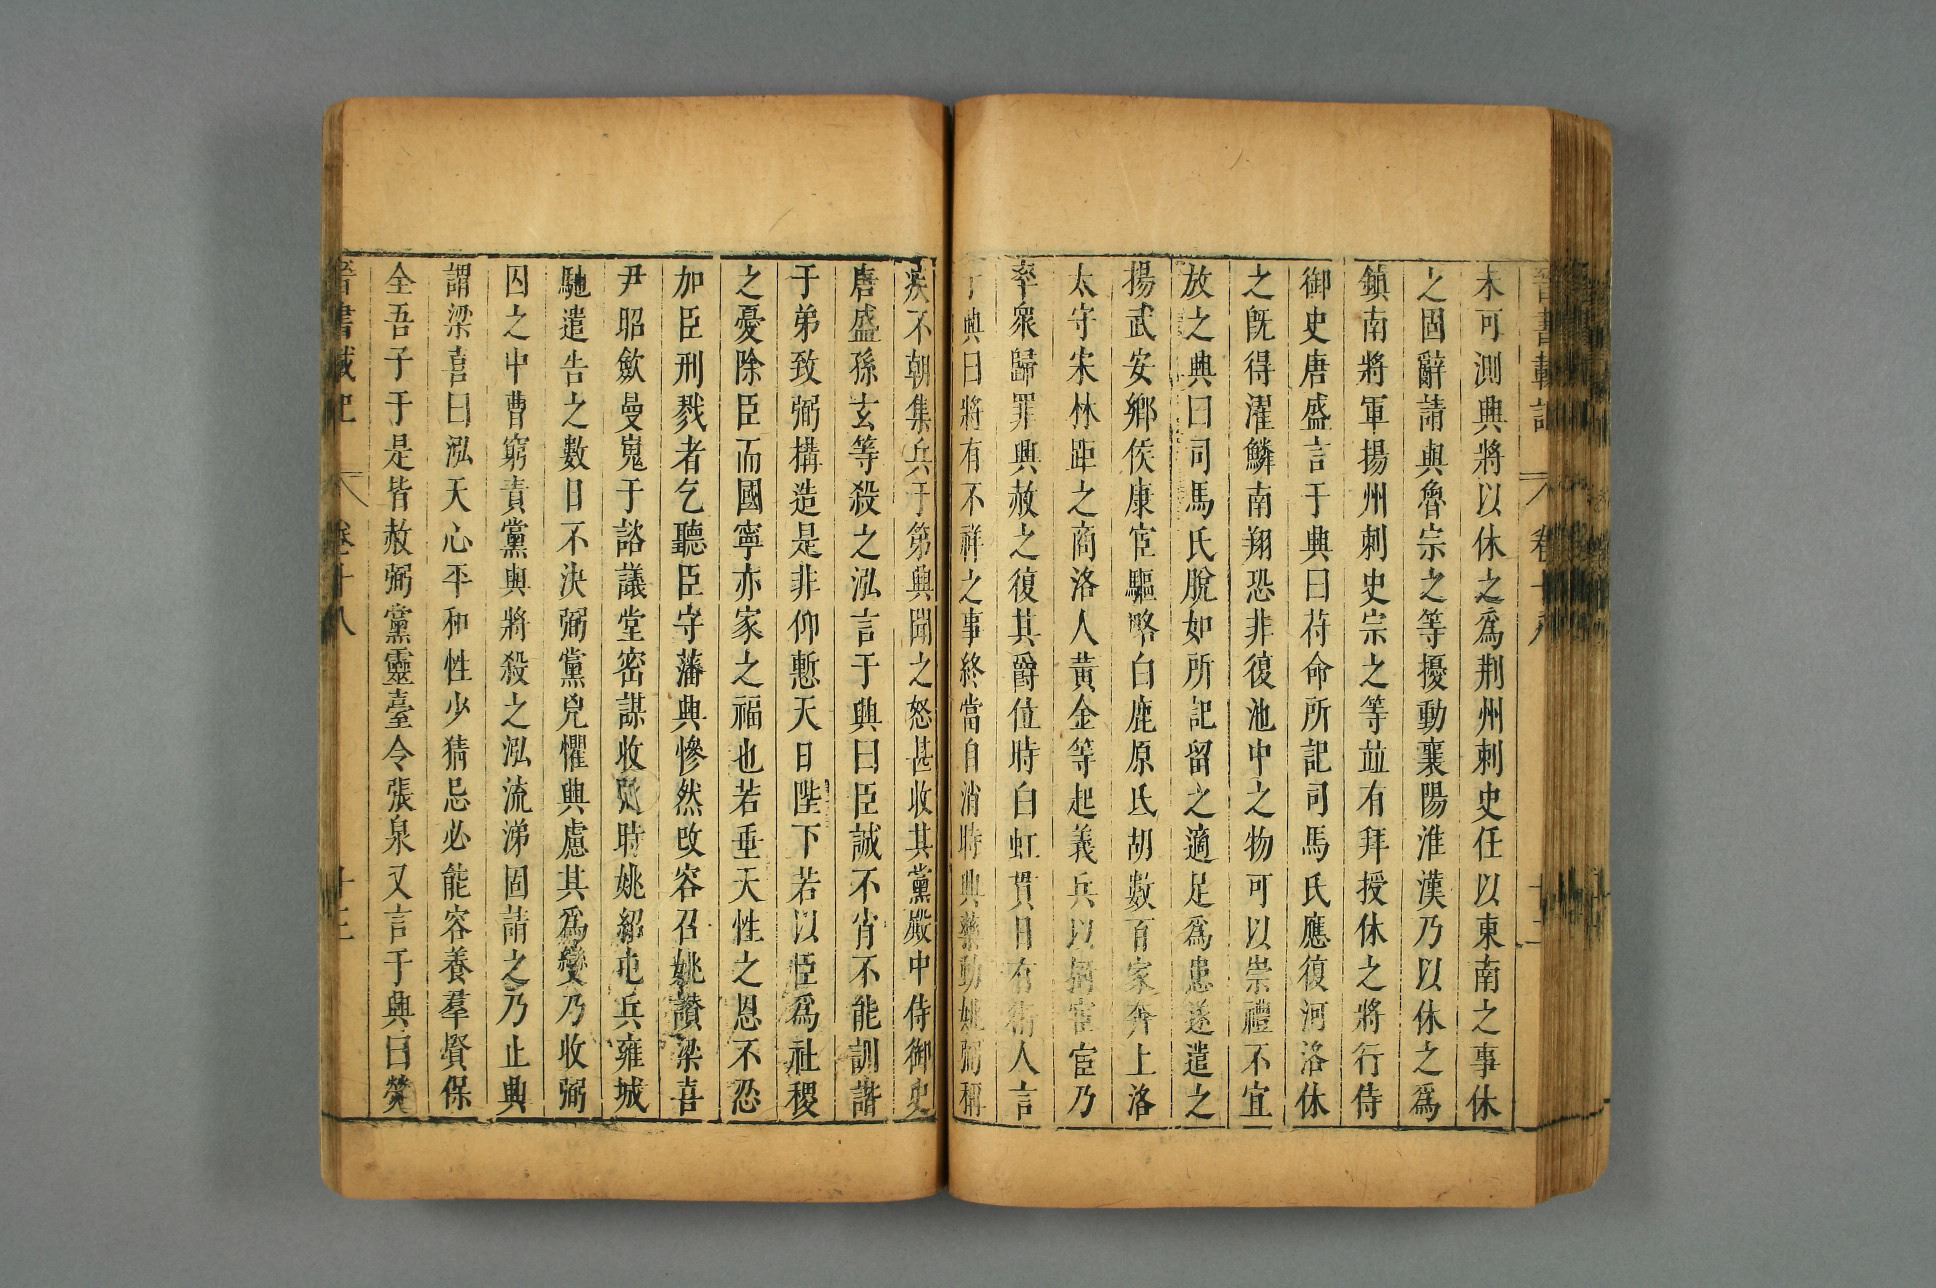 晉書載記 卷十八 十二
未可測興將以休之爲荆州刺史任以東南之事休
之固辭請與魯宗之等擾動襄陽淮漢乃以休之爲
鎮南將軍揚州刺史宗之等並有拜授休之將行侍
御史唐盛言于興曰苻命所記司馬氏應復河洛休
之旣得濯鱗南翔恐非復池中之物可以崇禮不宜
放之興曰司馬氏脫如所記留之適足爲患遂遣之
揚武安鄉侯康宦驅略白鹿原氐胡數百家奔上洛
太守宋林距之商洛人黃金等起義兵以掎宦宦乃
率衆歸罪興赦之復其爵位時白虹貫日有術人言
于興曰將有不祥之事終當自消時興藥動姚弼稱
疾不朝集兵于第興聞之怒甚收其黨殿中侍御史
唐盛孫玄等殺之泓言于興曰臣誠不肖不能訓諧
于弟致弼構造是非仰慙天日陛下若以臣爲社稷
之憂除臣而國寧亦家之福也若垂天性之恩不忍
加臣刑戮者乞聽臣守藩興慘然改容召姚讚梁喜
尹昭斂曼嵬于諮議堂密謀收弼時姚紹屯兵雍城
馳遣告之數日不決弼黨兇懼興慮其爲變乃收弼
囚之中曹窮責黨與將殺之泓流涕固請之乃止興
謂梁喜曰泓天心平和性少猜忌必能容養羣賢保
全吾子于是皆赦弼黨靈臺令張泉又言于興曰熒
晉書載記 卷十八 十三